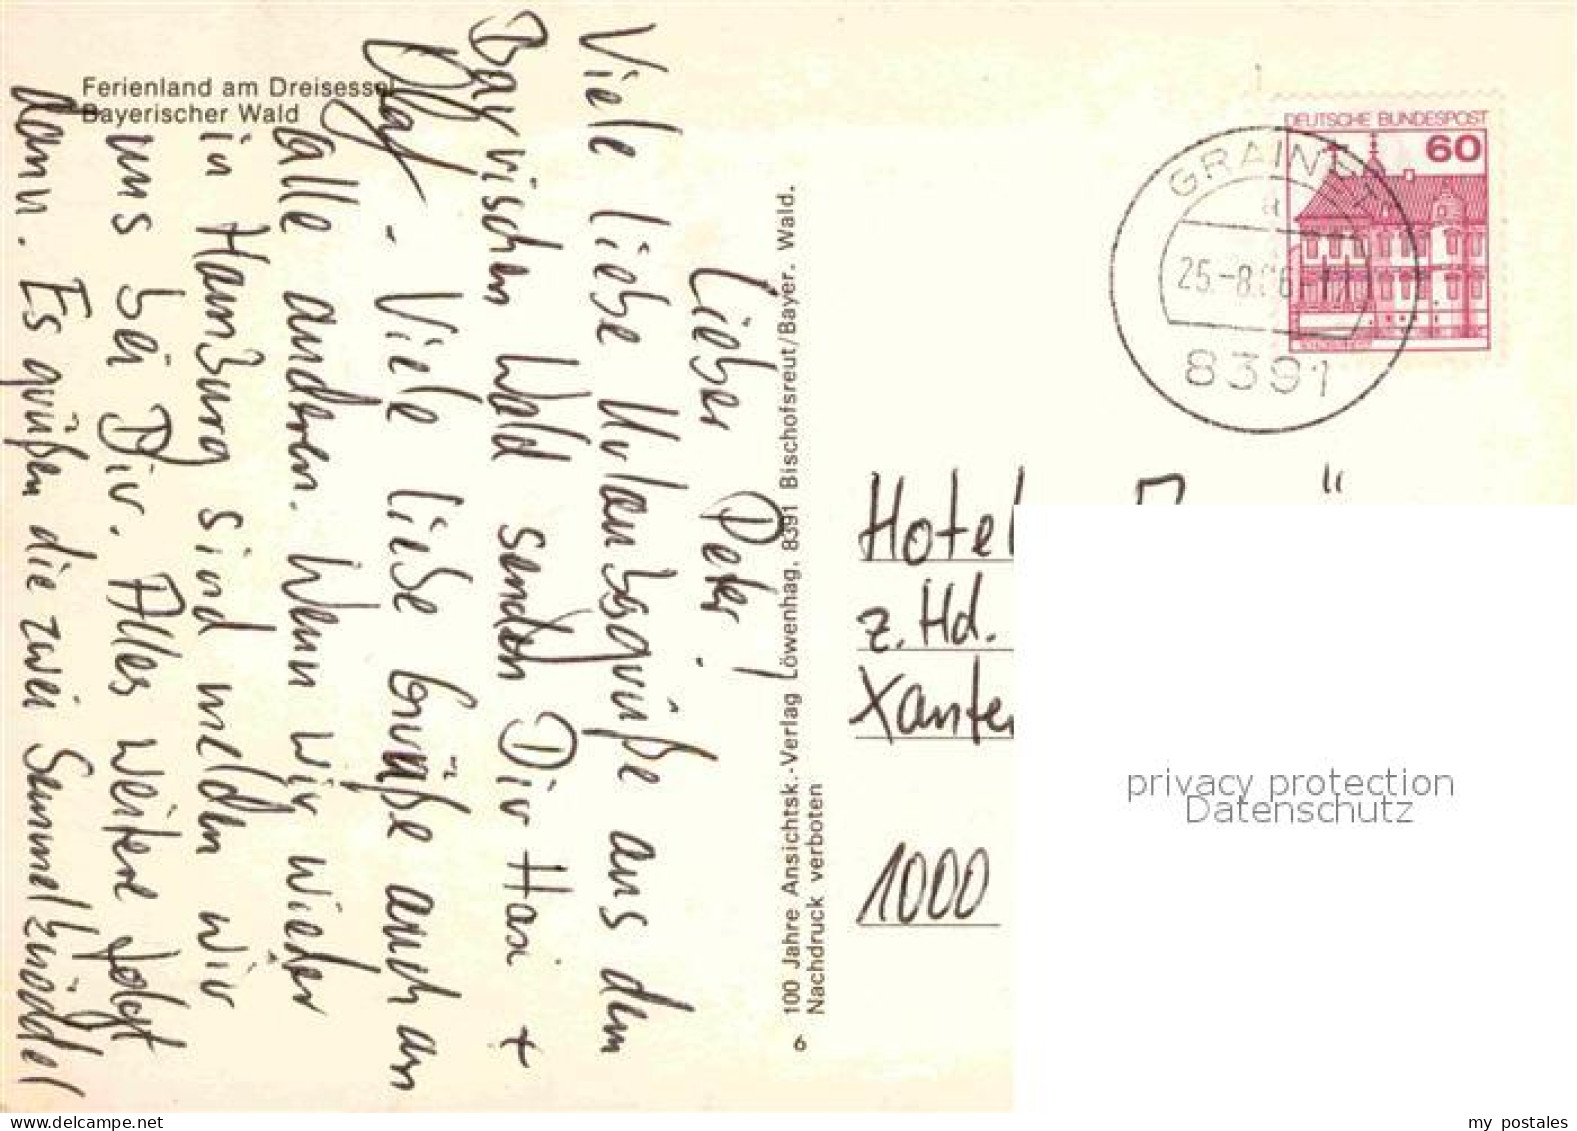 Ferienland am Dreisessel
Bayerischer Wald
Lieber Peter!
Viele liebe Urlaubsgrüße aus dem
Bayrischen Wald senden Dir Hasi +
Olaf - Viele liebe Grüße auch an
alle anderen. Wenn wir wieder
in Hamburg sind melden wir
uns bei Dir. Alles weitere folgt
dann. Es grüßen die zwei Semmelknödel
100 Jahre Ansichtsk.-Verlag Löwenhag, 8391 Bischofsreut/Bayer. Wald.
Nachdruck verboten
6
DEUTSCHE BUNDESPOST
60
GRAINET
a
25.-8.
8391
Hotel
z. Hd.
Xanten
1000
privacy protection
Datenschutz
my postales